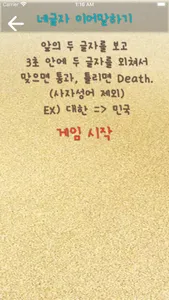 Carrier 1:16 AM
네글자 이어말하기
앞의 두 글자를 보고
3초 안에 두 글자를 외쳐서
맞으면 통과, 틀리면 Death.
(사자성어 제외)
EX) 대한 => 민국
게임 시작